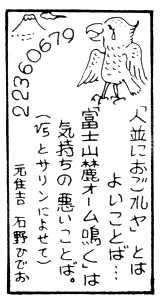 22360679
「人並におごれヤ」とは
よいことば…
「富士山麓オーム鳴く」は
気持ちの悪いことば。
(√5とサリンによせて)
元住吉 石野ひでお